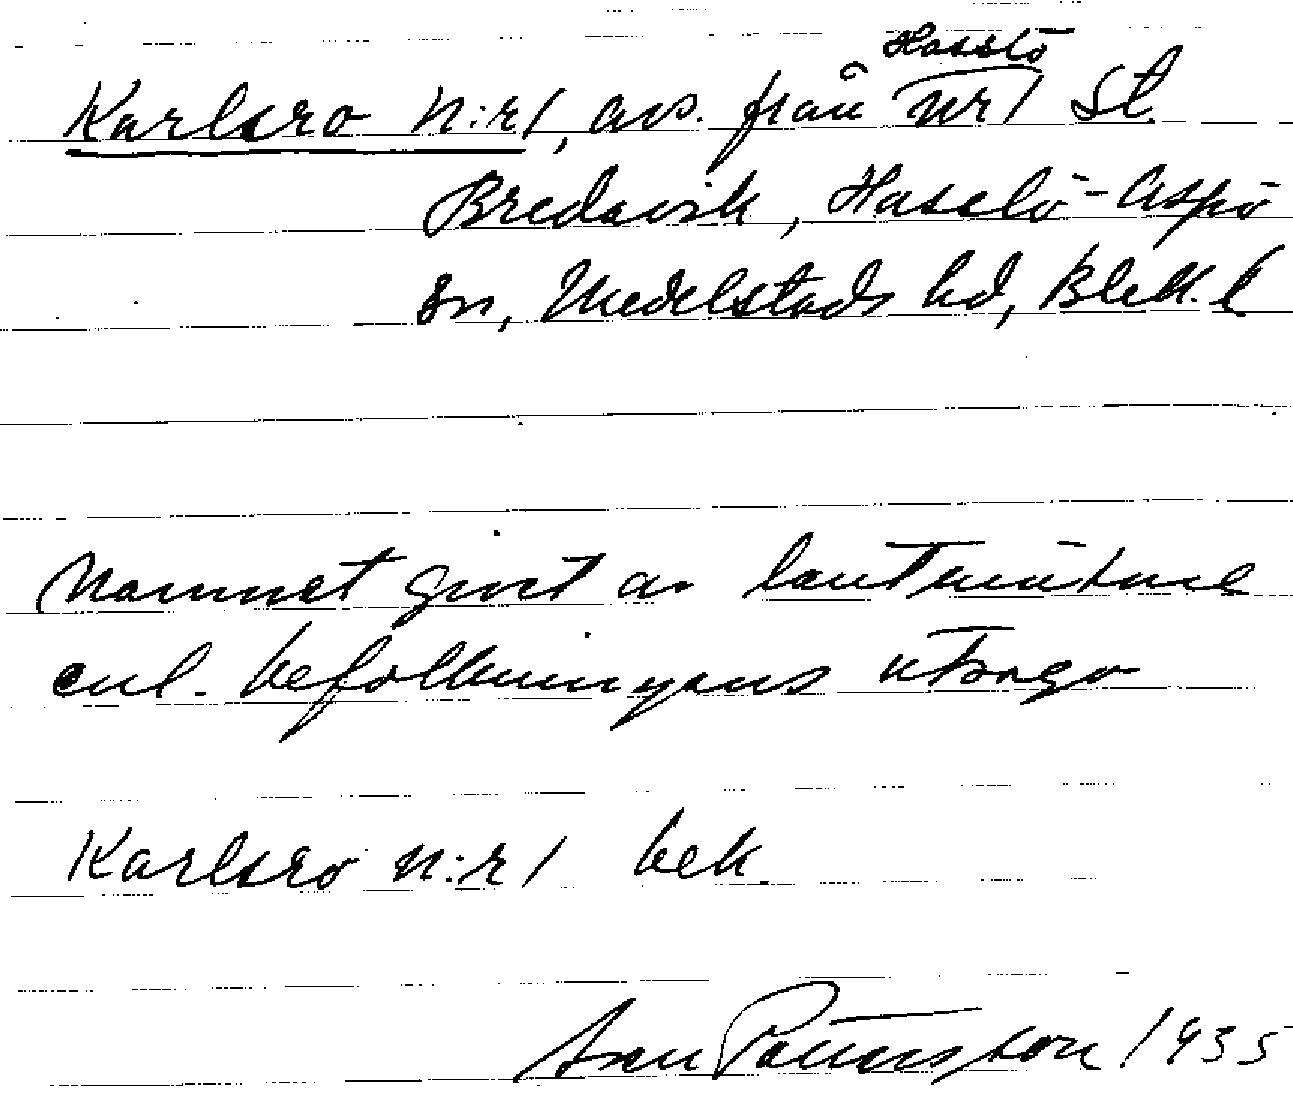 Hasslö
Karlsro N:r 1, avs. från nr 1 St.
Bredavik, Hasslö-Aspö
sn, Medelstads hd, Blek. l
Namnet givet av lantmätare
enl. befolkningens utsago
Karlsro n:r 1 bek.
Pettersson 1935